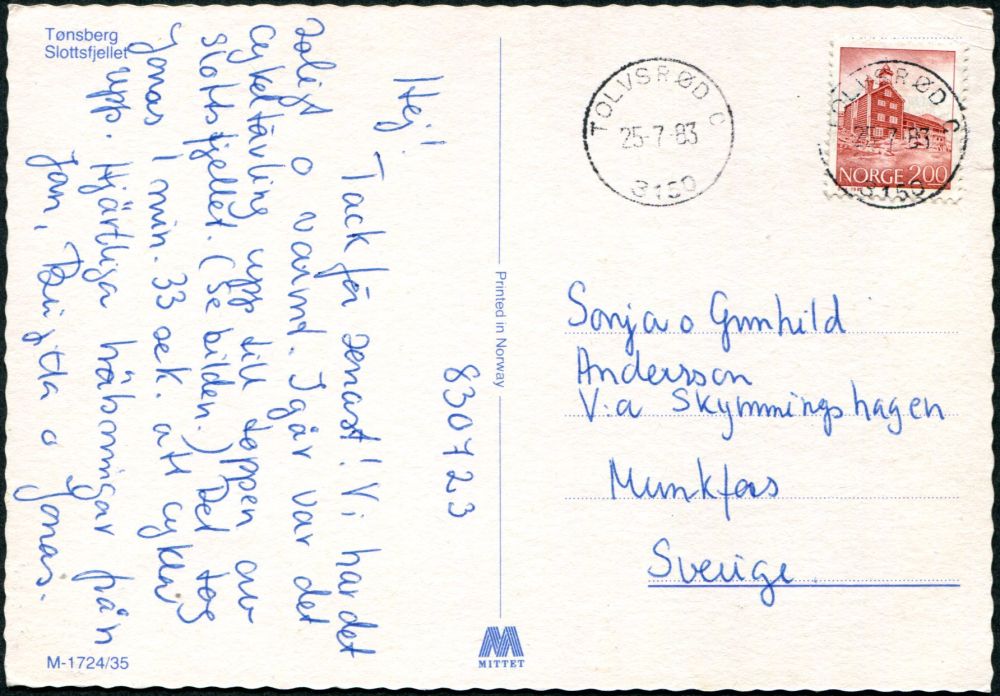 Tønsberg
Slottsfjellet
830723
Hej!
Tack för senast! Vi har det
soligt o varmt. Igår var det
cykeltävling upp till toppen av
slottsfjellet. (Se bilden.) Det tog
Jonas 1 min. 33 sek. att cykla
upp. Hjärtliga hälsningar från
Jan, Birgitta o Jonas.
M-1724/35
Printed in Norway
MITTET
TOLVSRØD C
25-7-83
3150
TOLVSRØD C
25-7-83
3150
NORGE 200
Sonja o Gunhild
Andersson
V:a Skymningshagen
Munkfors
Sverige